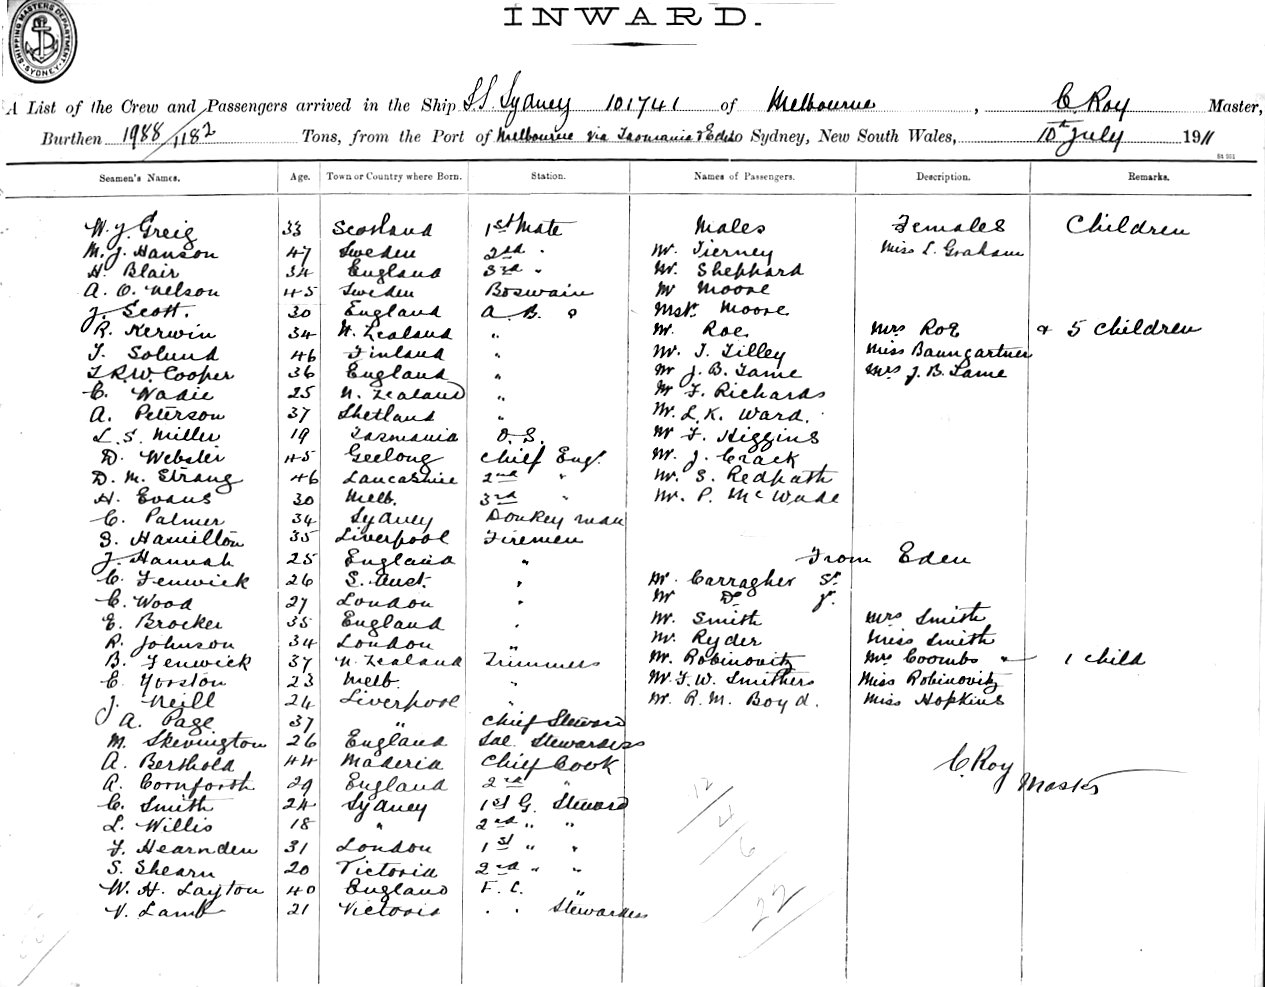 SHIPPING MASTERS DEPARTMENT SYDNEY
INWARD.
A List of the Crew and Passengers arrived in the Ship SS Sydney 101741 of Melbourne, C. Roy Master,
Burthen 1988/1182 Tons, from the Port of Melbourne via Tasmania & Eden to Sydney, New South Wales, 10th July 1911
Seamen's Names. Age. Town or Country where Born. Station. Names of Passengers. Description. Remarks.
W. J. Greig 33 Scotland 1st Mate Males Females Children
M. J. Hanson 47 Sweden 2nd " Mr. Tierney Miss L. Graham
H. Blair 34 England 3rd " Mr. Shephard
A. O. Nelson 45 Sweden Boswain Mr Moore
J. Scott. 30 England A.B. Mstr. Moore
R. Kerwin 34 N. Zealand " Mr. Roe Mrs Roe & 5 Children
T. Solund 46 Finland " Mr. T. Tilley Miss Baumgartner
T.R.W. Cooper 36 England " Mr J. B. Tame Mrs J. B. Tame
C. Wadie 25 N. Zealand " Mr F. Richards
A. Peterson 37 Shetland " Mr. L. K. Ward.
L. S. Miller 19 Tasmania O.S. Mr F. Higgins
D. Webster 45 Geelong Chief Eng. Mr. J. Crack
D. M. Strang 46 Lancashire 2nd " Mr. S. Redpath
H. Evans 30 Melb. 3rd " Mr. P. McWade
C. Palmer 34 Sydney Donkey man
S. Hamilton 35 Liverpool Firemen
J. Hannah 25 England " From Eden
C. Fenwick 26 S. Aust. " Mr. Carragher Sr.
C. Wood 27 London " Mr Do Jr.
E. Brocker 35 England " Mr. Smith Mrs Smith
R. Johnson 34 London " Mr. Ryder Miss Smith
B. Fenwick 37 N. Zealand Trimmers Mr. Robinovitz Mrs Coombs " 1 child
C. Yorston 23 Melb. " Mr. F. W. Smithers Miss Robinovitz
J. Neill 24 Liverpool " Mr. R. M. Boyd. Miss Hopkins
A. Page 37 " Chief Steward
M. Skevington 26 England Sal. Stewardess
A. Berthold 44 Maderia Chief Cook C. Roy
A. Cornforth 29 England 2nd " Master
C. Smith 24 Sydney 1st G. Steward 12
L. Willis 18 " 2nd " " 4
F. Hearnden 31 London 1st " " 6
S. Shearn 20 Victoria 2nd " "
W. H. Layton 40 England F. C. " 22
V. Lamb 21 Victoria . . Stewardess